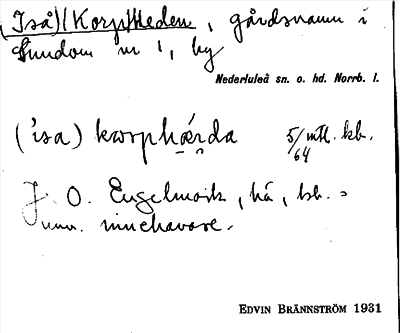 (Iså)(Korp)Heden, gårdsnamn i
Sundom nr 1, by
Nederluleå sn. o. hd. Norrb. l.
('isa) korphǽrda 5/64 mtl. kb.
J. O. Engelmark, hå, bb. =
nuv. innehavare.
EDVIN BRÄNNSTRÖM 1931